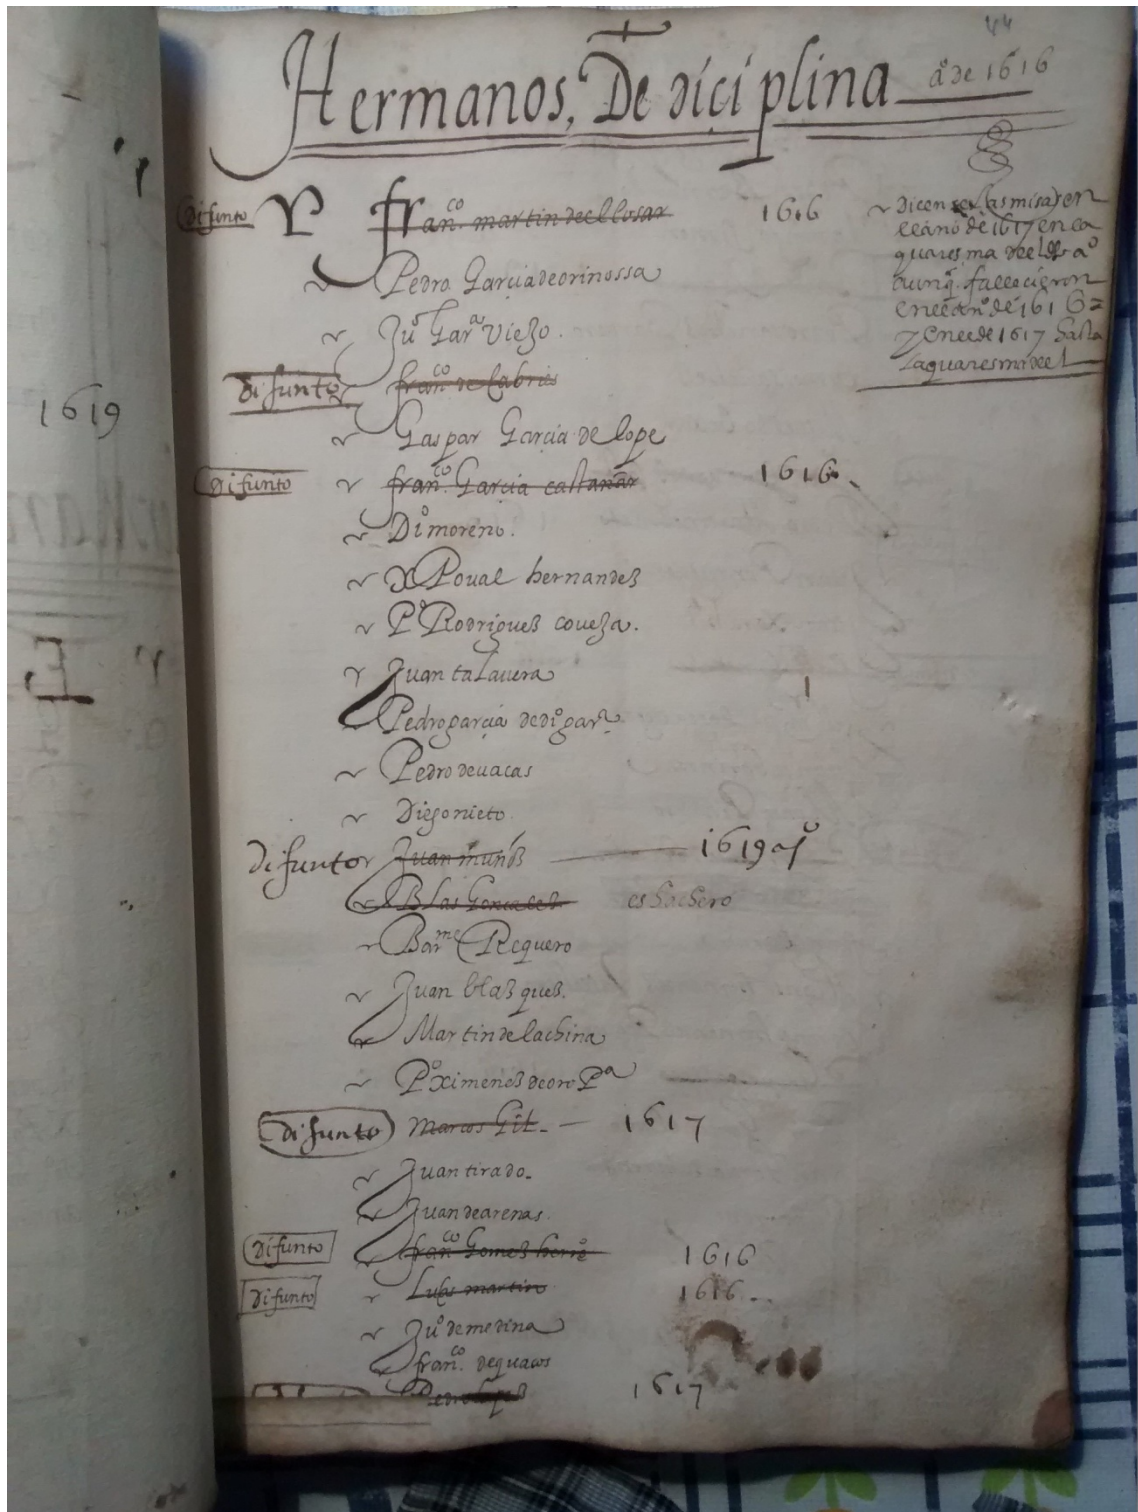 44
Hermanos, De diciplina aº de 1616
Difunto franco. martin deel losar 1616
Pedro Garçia de orinossa
Juº Garª Viejo.
Difunto franco de Cabrie
Gaspar Garçia de lope
Difunto franco. Garçia castañar 1616.
Diº moreno.
xpoual hernandez
Pº Rodriguez coueja.
Juan talauera
Pedro garçia de diº garª.
Pedro de uacas
Diego nieto.
Difunto Juan muñoz 1619 aº
Blas Goncalez es hachero
Barme Requero
Juan blasquez.
Martin de la china
Pº ximenez de oroPª
Difunto Marcos Gil. 1617
Juan tirado.
Juan de arenas.
Difunto franco Gomez herrº 1616
Difunto Lucas martin 1616
Juº de medina
franco. de quacos
Pedro lopez 1617
dicense las misas en
el año de 1617 en la
quaresma deel
aunq. fallecieron
en eel anº de 1616
y en el de 1617 hasta
la quaresma deel
1619